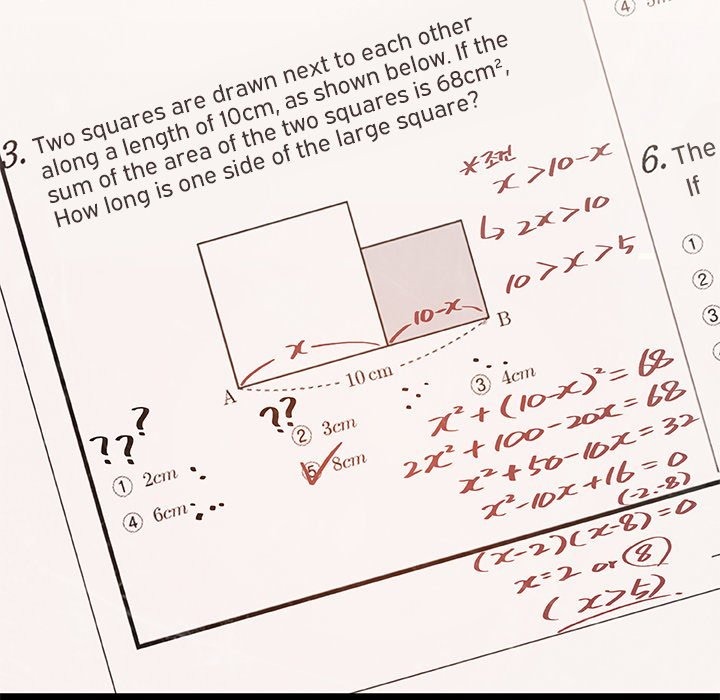 3. Two squares are drawn next to each other
along a length of 10cm, as shown below. If the
sum of the area of the two squares is 68cm²,
How long is one side of the large square?
*조건
x > 10-x
↳ 2x > 10
10 > x > 5
x
10-x
A
B
10 cm
???
① 2cm
??
② 3cm
③ 4cm
④ 6cm
⑤ 8cm
x² + (10-x)² = 68
2x² + 100 - 20x = 68
x² + 50 - 10x = 32
x² - 10x + 16 = 0
(-2.-8)
(x-2)(x-8) = 0
x = 2 or 8
(x>5).
④
6. The
If
①
②
③